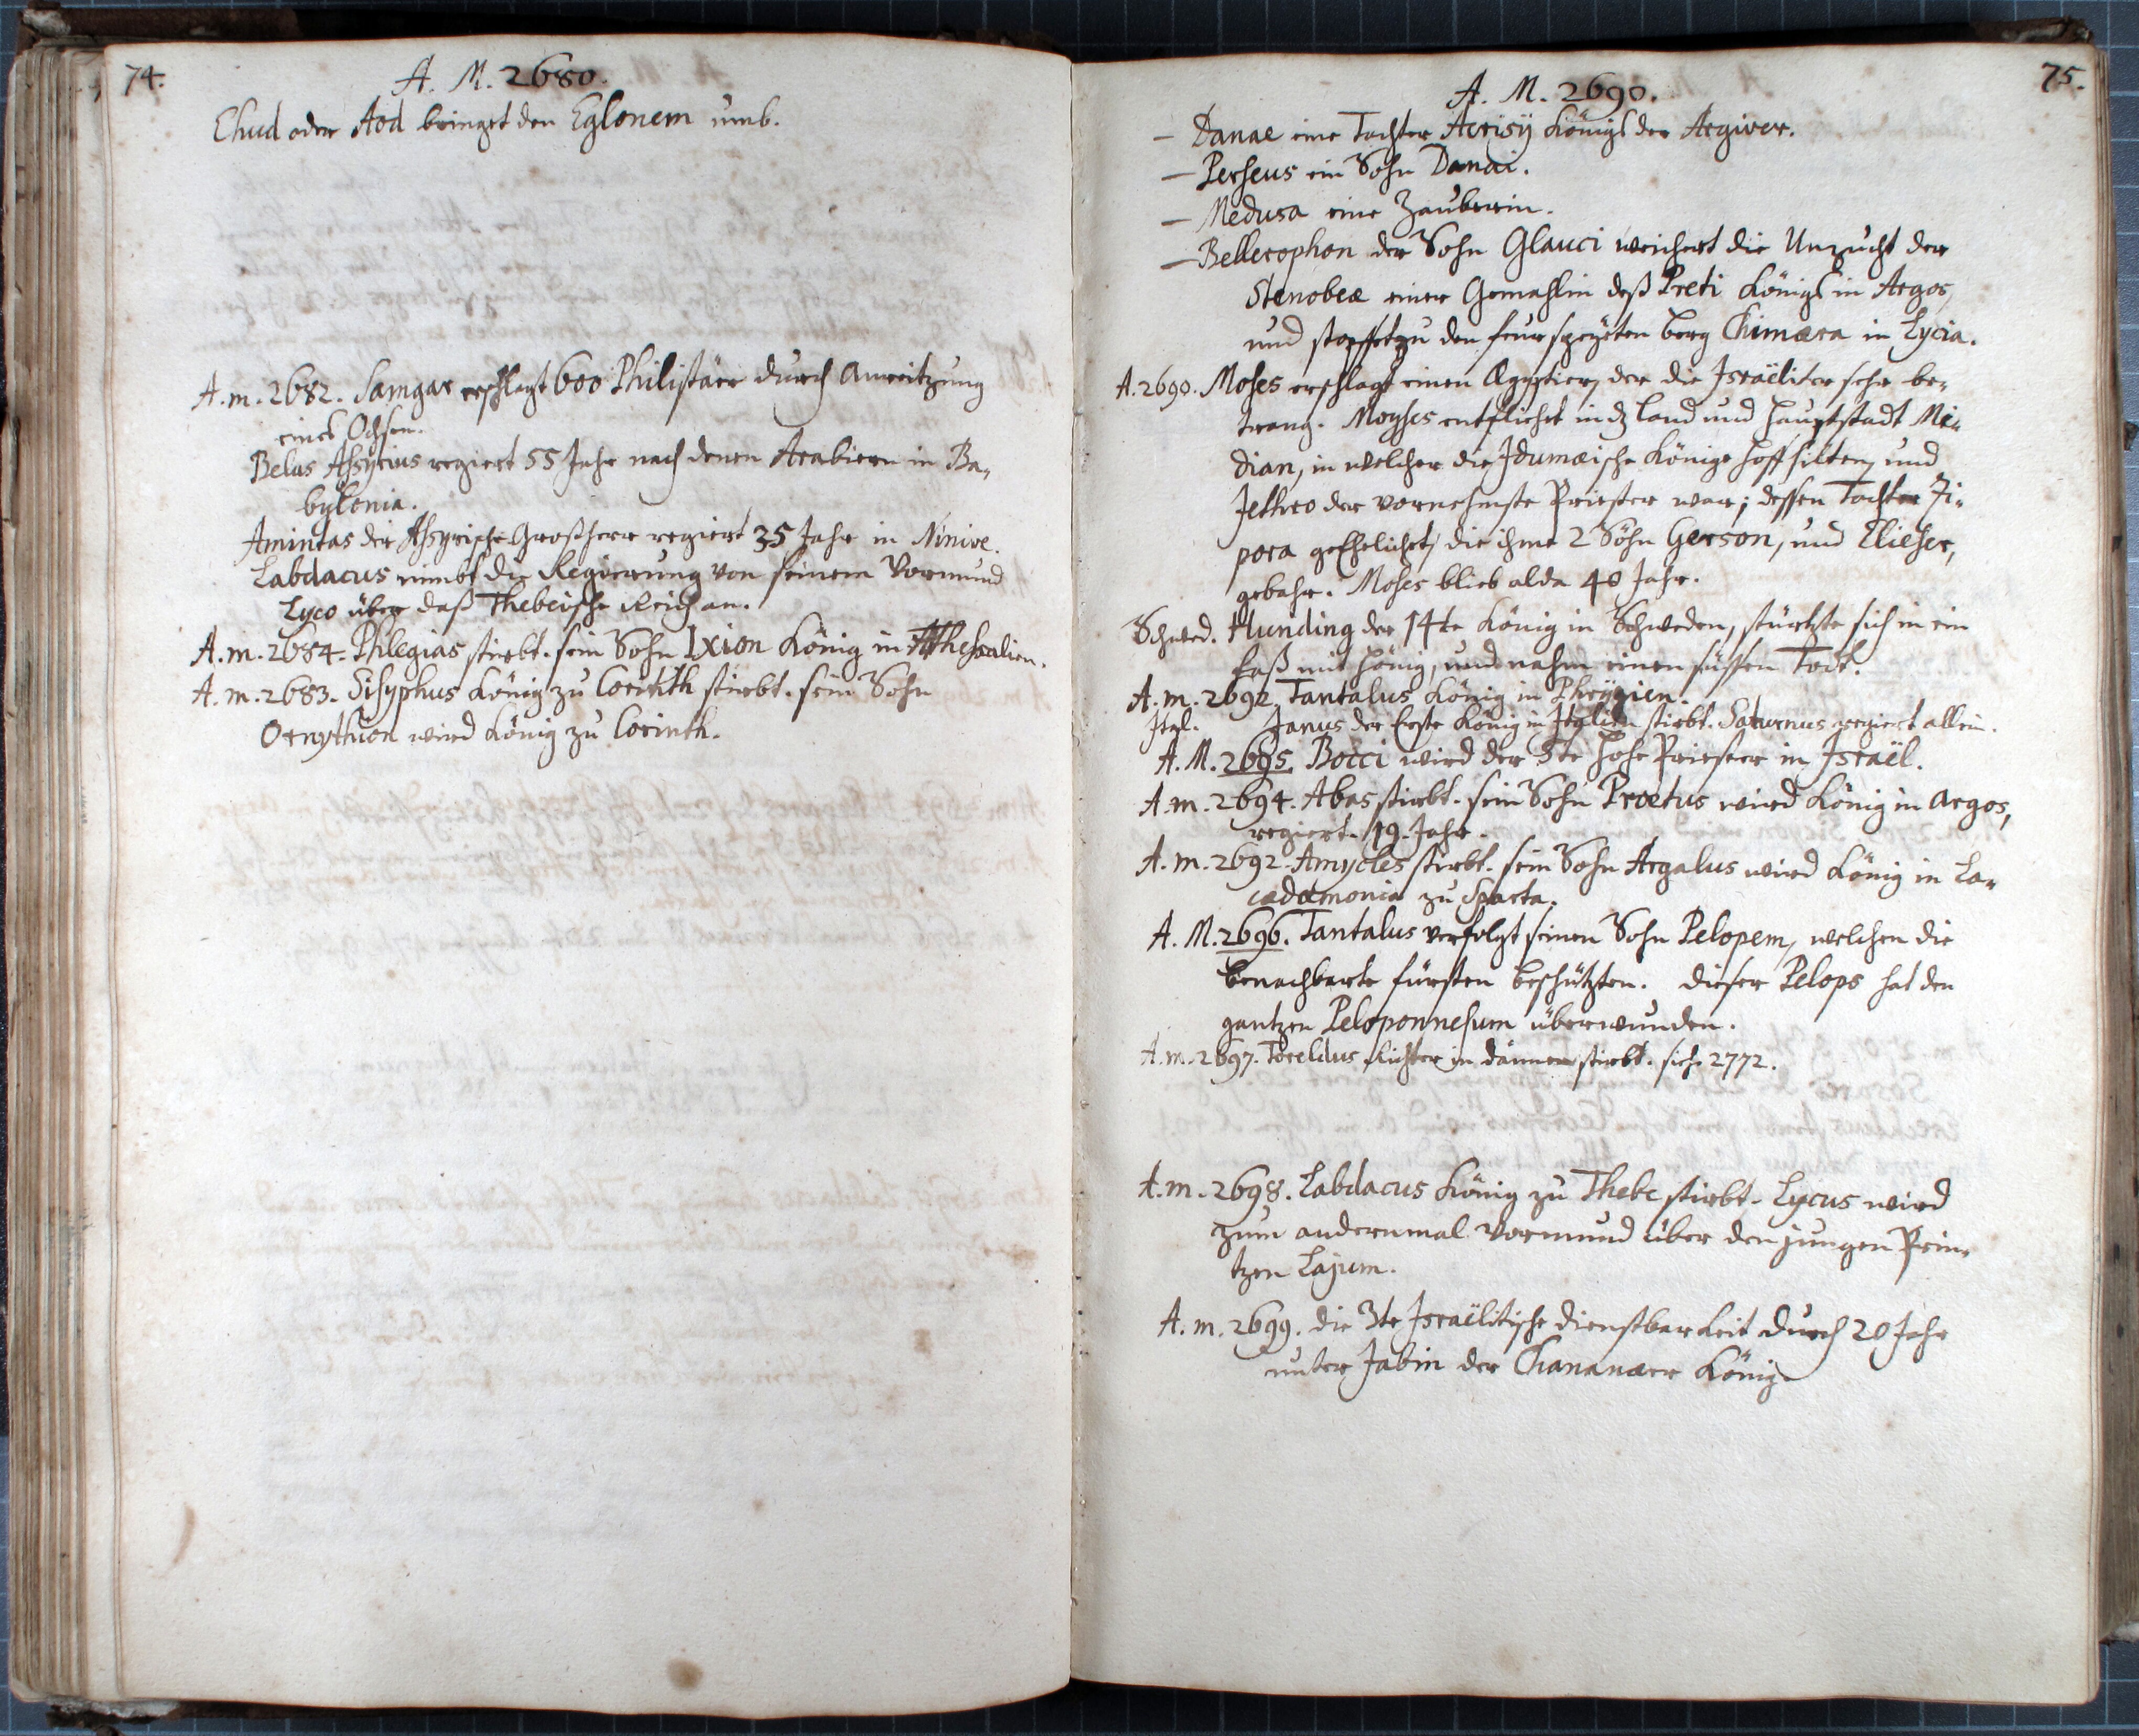 74.
A. M. 2680.
Ehud oder Aod bringet den Eglonem umb.
A. m. 2682. Samgar erschlagt 600 Philistäer durch Anreitzung
eines Ochsen.
Belus Assyrius regiert 55 Jahr nach denen Arabiern in Ba-
bylonia.
Amintas der Assyrische Großherr regiert 35 Jahr in Ninive.
Labdacus nimbt die Regierung von seinem Vormund
Lyco über daß Thebeische Reich an.
A. m. 2684. Phlegias stirbt. sein Sohn Ixion König in Thessalien.
A. m. 2683. Sisyphus König zu Corinth stirbt. sein Sohn
Ornythion wird König zu Corinth.
75.
A. M. 2690.
– Danae eine Tochter Acrisÿ Königs der Argiver.
– Perseus ein Sohn Danai.
– Medusa eine Zauberin.
– Bellerophon der Sohn Glauci weichert die Unzucht der
Stenobeæ einer Gemahlin deß Preti Königs in Argos,
und stopffet zu den feur speyeten berg Chimæra in Lycia.
A. 2690. Moses erschlagt einen Ægyptier, der die Israëliter sehr be-
trang. Moyses entfliehet in dz land und Hauptstadt Mi-
dian, in welcher die Idumæische Könige hoff hilten, und
Jethro der vornehmste Priester war; dessen Tochter Zi-
pora geEhelichet, die ihme 2 Söhn Gerson, und Elieser,
gebahr. Moses blieb alda 40 Jahr.
Schwed. Hunding der 14te König in Schweden, stürtzte sich in ein
faß mit hönig, und nahm einen süssen Todt.
A. m. 2692. Tantalus König in Phrÿgien.
Ital. Janus der Erste König in Italien stirbt. Saturnus regiert allein.
A. M. 2695. Bocci wird der 5te Hohe Priester in Israël.
A. m. 2694. Abas stirbt. sein Sohn Proetus wird König in Argos,
regiert. 19. Jahr.
A. m. 2692. Amycles stirbt. sein Sohn Argalus wird König in La-
cædæmonia zu Sparta.
A. M. 2696. Tantalus verfolgt seinen Sohn Pelopem, welchen die
benachbarte fürsten beschützten. dieser Pelops hat den
gantzen Peloponnesum überwunden.
A. m. 2697. Toreldus Richter in Dännem stirbt. sieh 2772.
A. m. 2698. Labdacus König zu Thebe stirbt. Lycus wird
zum andernmal Vormund über den jungen Prin-
tzen Lajum.
A. m. 2699. die 3te Israëlitische dienstbarkeit durch 20 Jahr
unter Jabin der Chananæer König.